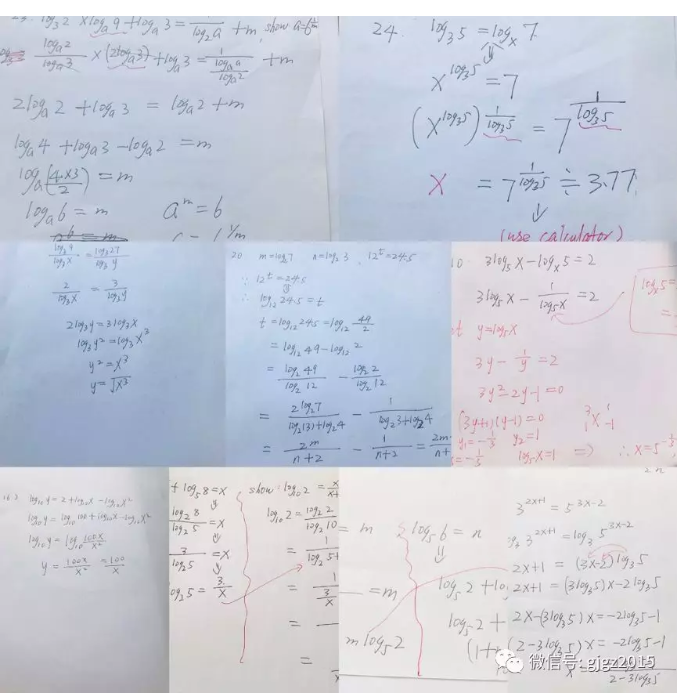 log₃2 × logₐ9 + logₐ3 = 1/log₂a + m, show a=b^(1/m)
logₐ2/logₐ3 × (2logₐ3) + logₐ3 = 1/(logₐa/logₐ2) + m
2logₐ2 + logₐ3 = logₐ2 + m
logₐ4 + logₐ3 - logₐ2 = m
logₐ(4×3/2) = m
logₐb = m  aᵐ = b
24. log₃5 = logₓ7
x^(log₃5) = 7
(x^(log₃5))^(1/log₃5) = 7^(1/log₃5)
x = 7^(1/log₂5) ≑ 3.77
(use calculator)
log₃9/log₃x = log₃27/log₃y
2/log₃x = 3/log₃y
2log₃y = 3log₃x
log₃y² = log₃x³
y² = x³
y = √x³
20. m=log₂7 n=log₂3, 12ᵗ=24.5
∵ 12ᵗ=24.5
∴ log₁₂24.5 = t
t = log₁₂24.5 = log₁₂ 49/2
= log₁₂49 - log₁₂2
= log₂49/log₂12 - log₂2/log₂12
= 2log₂7/(log₂(3)+log₂4) - 1/(log₂3+log₂4)
= 2m/(n+2) - 1/(n+2) = 2m
10. 3log₅x - logₓ5 = 2
3log₅x - 1/log₅x = 2
logₓ5 =
y=log₅x
3y - 1/y = 2
3y²-2y-1=0
(3y+1)(y-1)=0
y₁=-1/3 y₂=1
log₅x=1 => ∴x=5
log₁₀y = 2 + log₁₀x - log₁₀x²
log₁₀y = log₁₀100 + log₁₀x - log₁₀x²
log₁₀y = log 100x/x²
y = 100x/x² = 100/x
+ log₅8 = x
log₂8/log₂5 = x
3/log₂5 = x
log₂5 = 3/x
show: log₁₀2 = x/
log₁₀2 = log₂2/log₂10
= 1/log₂5+
= 1/(3/x
=
=
= m
= m
m log₅2
log₅6 = n
log₅2 + lo
log₅2 +
(1+
3^(2x+1) = 5^(3x-2)
3^(2x+1) = log₃5^(3x-2)
2x+1 = (3x-2)log₃5
2x+1 = (3log₃5)x - 2log₃5
2x-(3log₃5)x = -2log₃5-1
(2-3log₃5)x = -2log₃5-1
2-3log₃5
微信号: gjgz2015